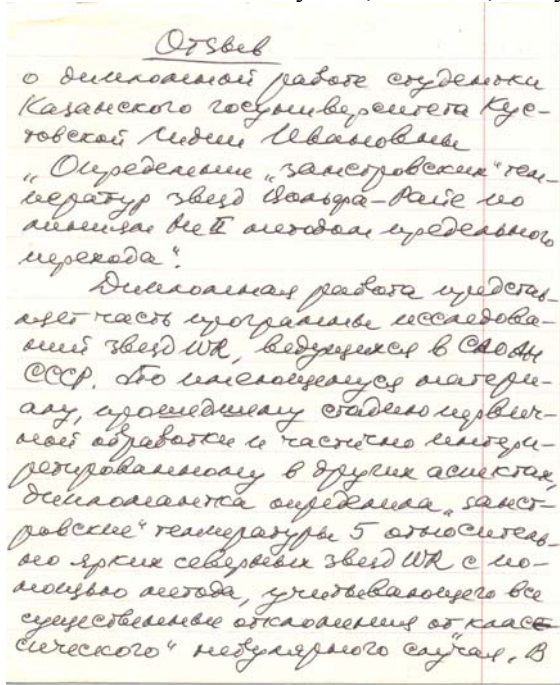 Отзыв
о дипломной работе студентки
Казанского госуниверситета Кус-
товской Лидии Ивановны
„Определение „занстровских“ тем-
ператур звезд Вольфа-Райе по
линиям HeII методом предельного
перехода“.
Дипломная работа представ
ляет часть программы исследова-
ний звезд WR, ведущихся в САО АН
СССР. По имеющемуся матери-
алу, прошедшему стадию первич-
ной обработки и частично интерп-
ретированному в других аспектах,
дипломантка определила „занст-
ровские“ температуры 5 относитель-
но ярких северных звезд WR с по-
мощью метода, учитывающего все
существенные отклонения от „клас
сического“ небулярного случая. В